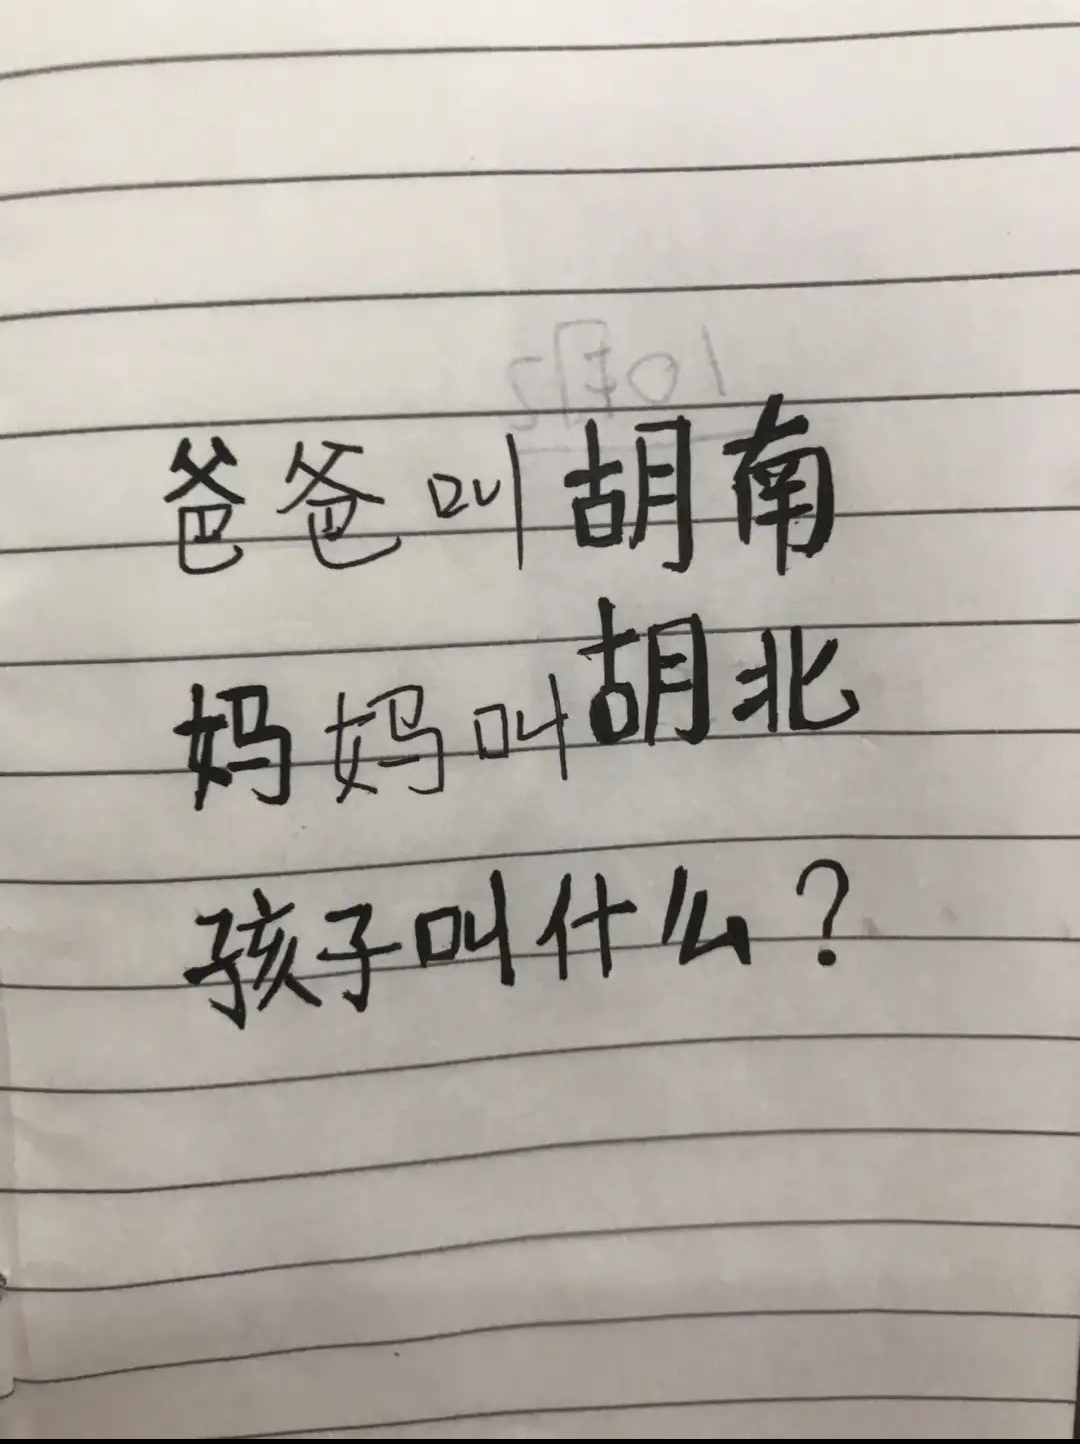 爸爸叫胡南
妈妈叫胡北
孩子叫什么？